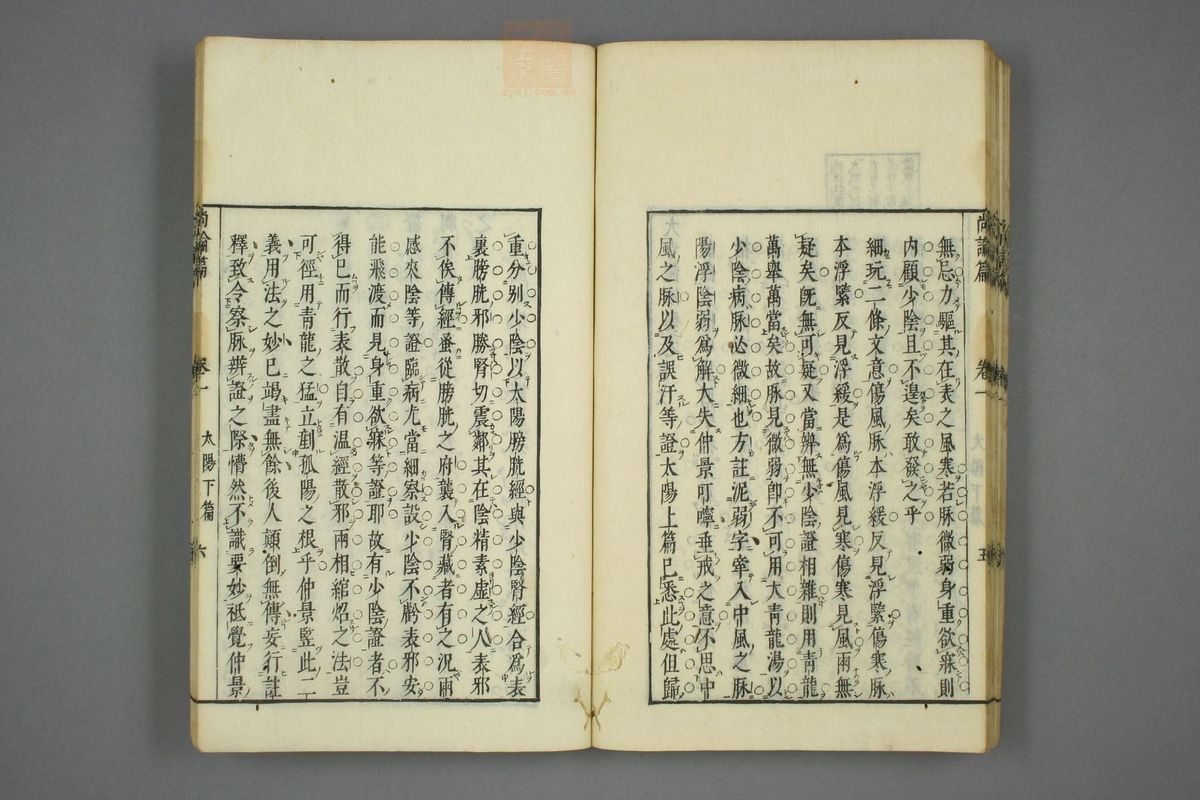 尚論篇 卷一 五
無忌力驅其在表之風寒若脉微弱身重欲寐則
内顧少陰且不遑矣敢發之乎
細玩二條文意傷風脉本浮緩反見浮緊傷寒脉
本浮緊反見浮緩是爲傷風見寒傷寒見風兩無
疑矣旣無可疑又當辨無少陰證相雜則用青龍
萬舉萬當矣故脉見微弱卽不可用大青龍湯以
少陰病脉必微細也方註泥弱字牽入中風之脉
陽浮陰弱爲解大失仲景叮嚀垂戒之意不思中
風之脉以及誤汗等證太陽上篇已悉此處但歸
重分别少陰以太陽膀胱經與少陰腎經合爲表
裏膀胱邪勝腎切震鄰其在陰精素虛之人表邪
不俟傳經蚤從膀胱之府襲入腎藏者有之况兩
感夾陰等證臨病尤當細察設少陰不虧表邪安
能飛渡而見身重欲寐等證耶故有少陰證者不
得已而行表散自有溫經散邪兩相綰炤之法豈
可徑用青龍之猛立剷孤陽之根乎仲景監此二
義用法之妙已竭盡無餘後人顛倒無傳妄行註
釋致令察脉辨證之際懵然不識要妙祗覺仲景
尚論篇 卷一 太陽下篇 六
zysj.com.cn